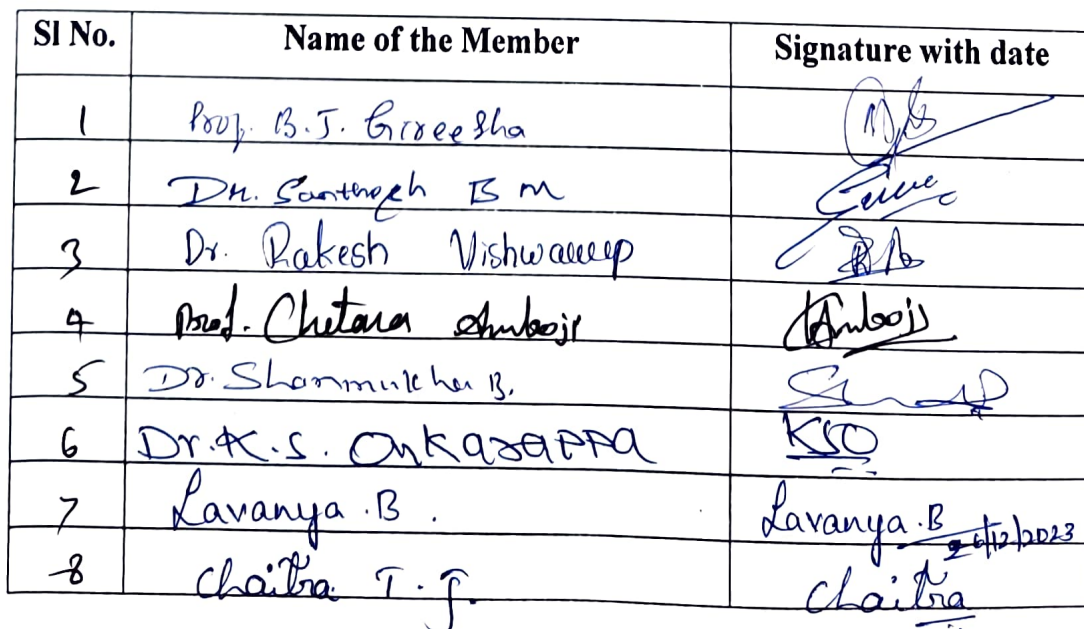 Sl No. Name of the Member Signature with date
1 Prof. B.J. Gireesha
2 Dr. Santhosh B M
3 Dr. Rakesh
4 Prof. Chetana Amboji Amboji
5 Dr. Shanmukha B.
6 Dr. K.S. Onkarappa KSO
7 Lavanya .B . Lavanya .B 26/12/2023
8 Chaitra T.J. Chaitra